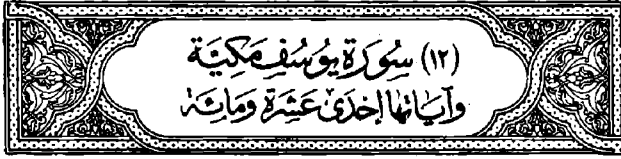 (١٢) سُورَةِ يُوسُفِ مَكِيَّة
وَآيَاتُهَا إِحْدَىٰ عَشَرَةَ وَمِائَة